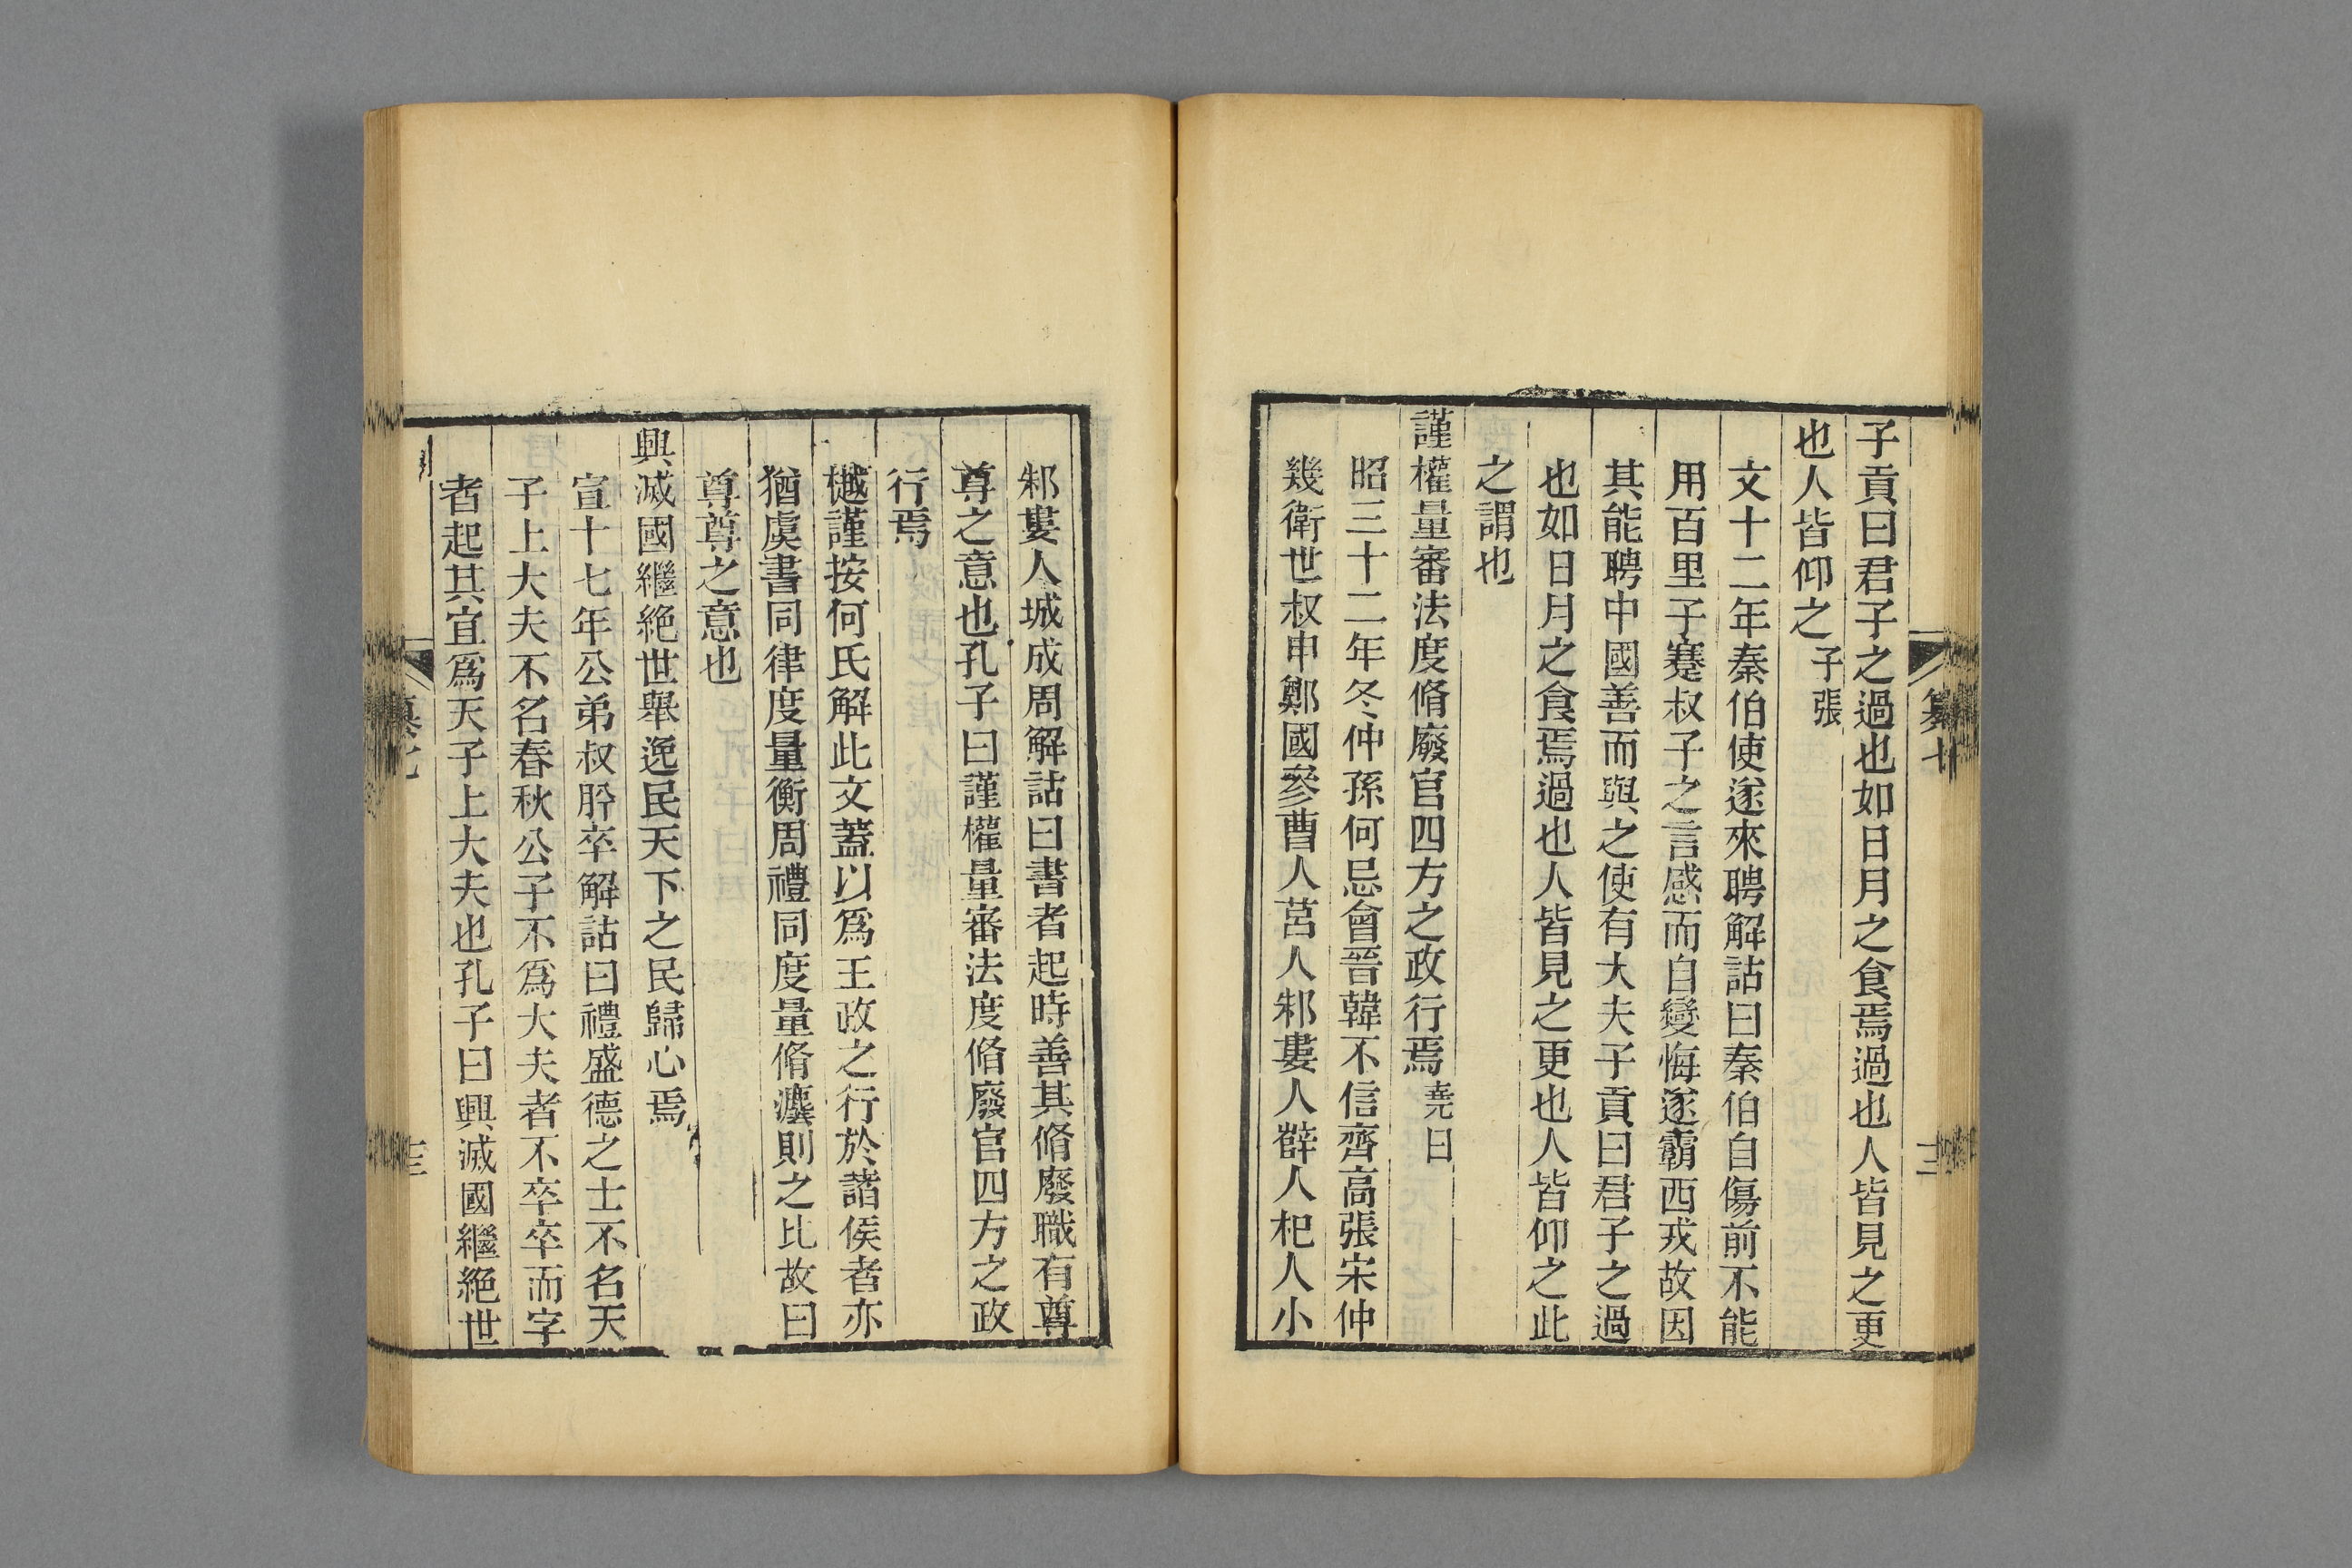 子貢曰君子之過也如日月之食焉過也人皆見之更
也人皆仰之子張
文十二年秦伯使遂來聘解詁曰秦伯自傷前不能
用百里子蹇叔子之言感而自變悔遂霸西戎故因
其能聘中國善而與之使有大夫子貢曰君子之過
也如日月之食焉過也人皆見之更也人皆仰之此
之謂也
謹權量審法度脩廢官四方之政行焉堯曰
昭三十二年冬仲孫何忌會晉韓不信齊高張宋仲
幾衛世叔申鄭國參曹人莒人邾婁人薛人杞人小
邾婁人城成周解詁曰書者起時善其脩廢職有尊
尊之意也孔子曰謹權量審法度脩廢官四方之政
行焉
樾謹按何氏解此文蓋以爲王政之行於諸侯者亦
猶虞書同律度量衡周禮同度量脩灋則之比故曰
尊尊之意也
興滅國繼絶世舉逸民天下之民歸心焉
宣十七年公弟叔肹卒解詁曰禮盛德之士不名天
子上大夫不名春秋公子不爲大夫者不卒卒而字
者起其宜爲天子上大夫也孔子曰興滅國繼絶世